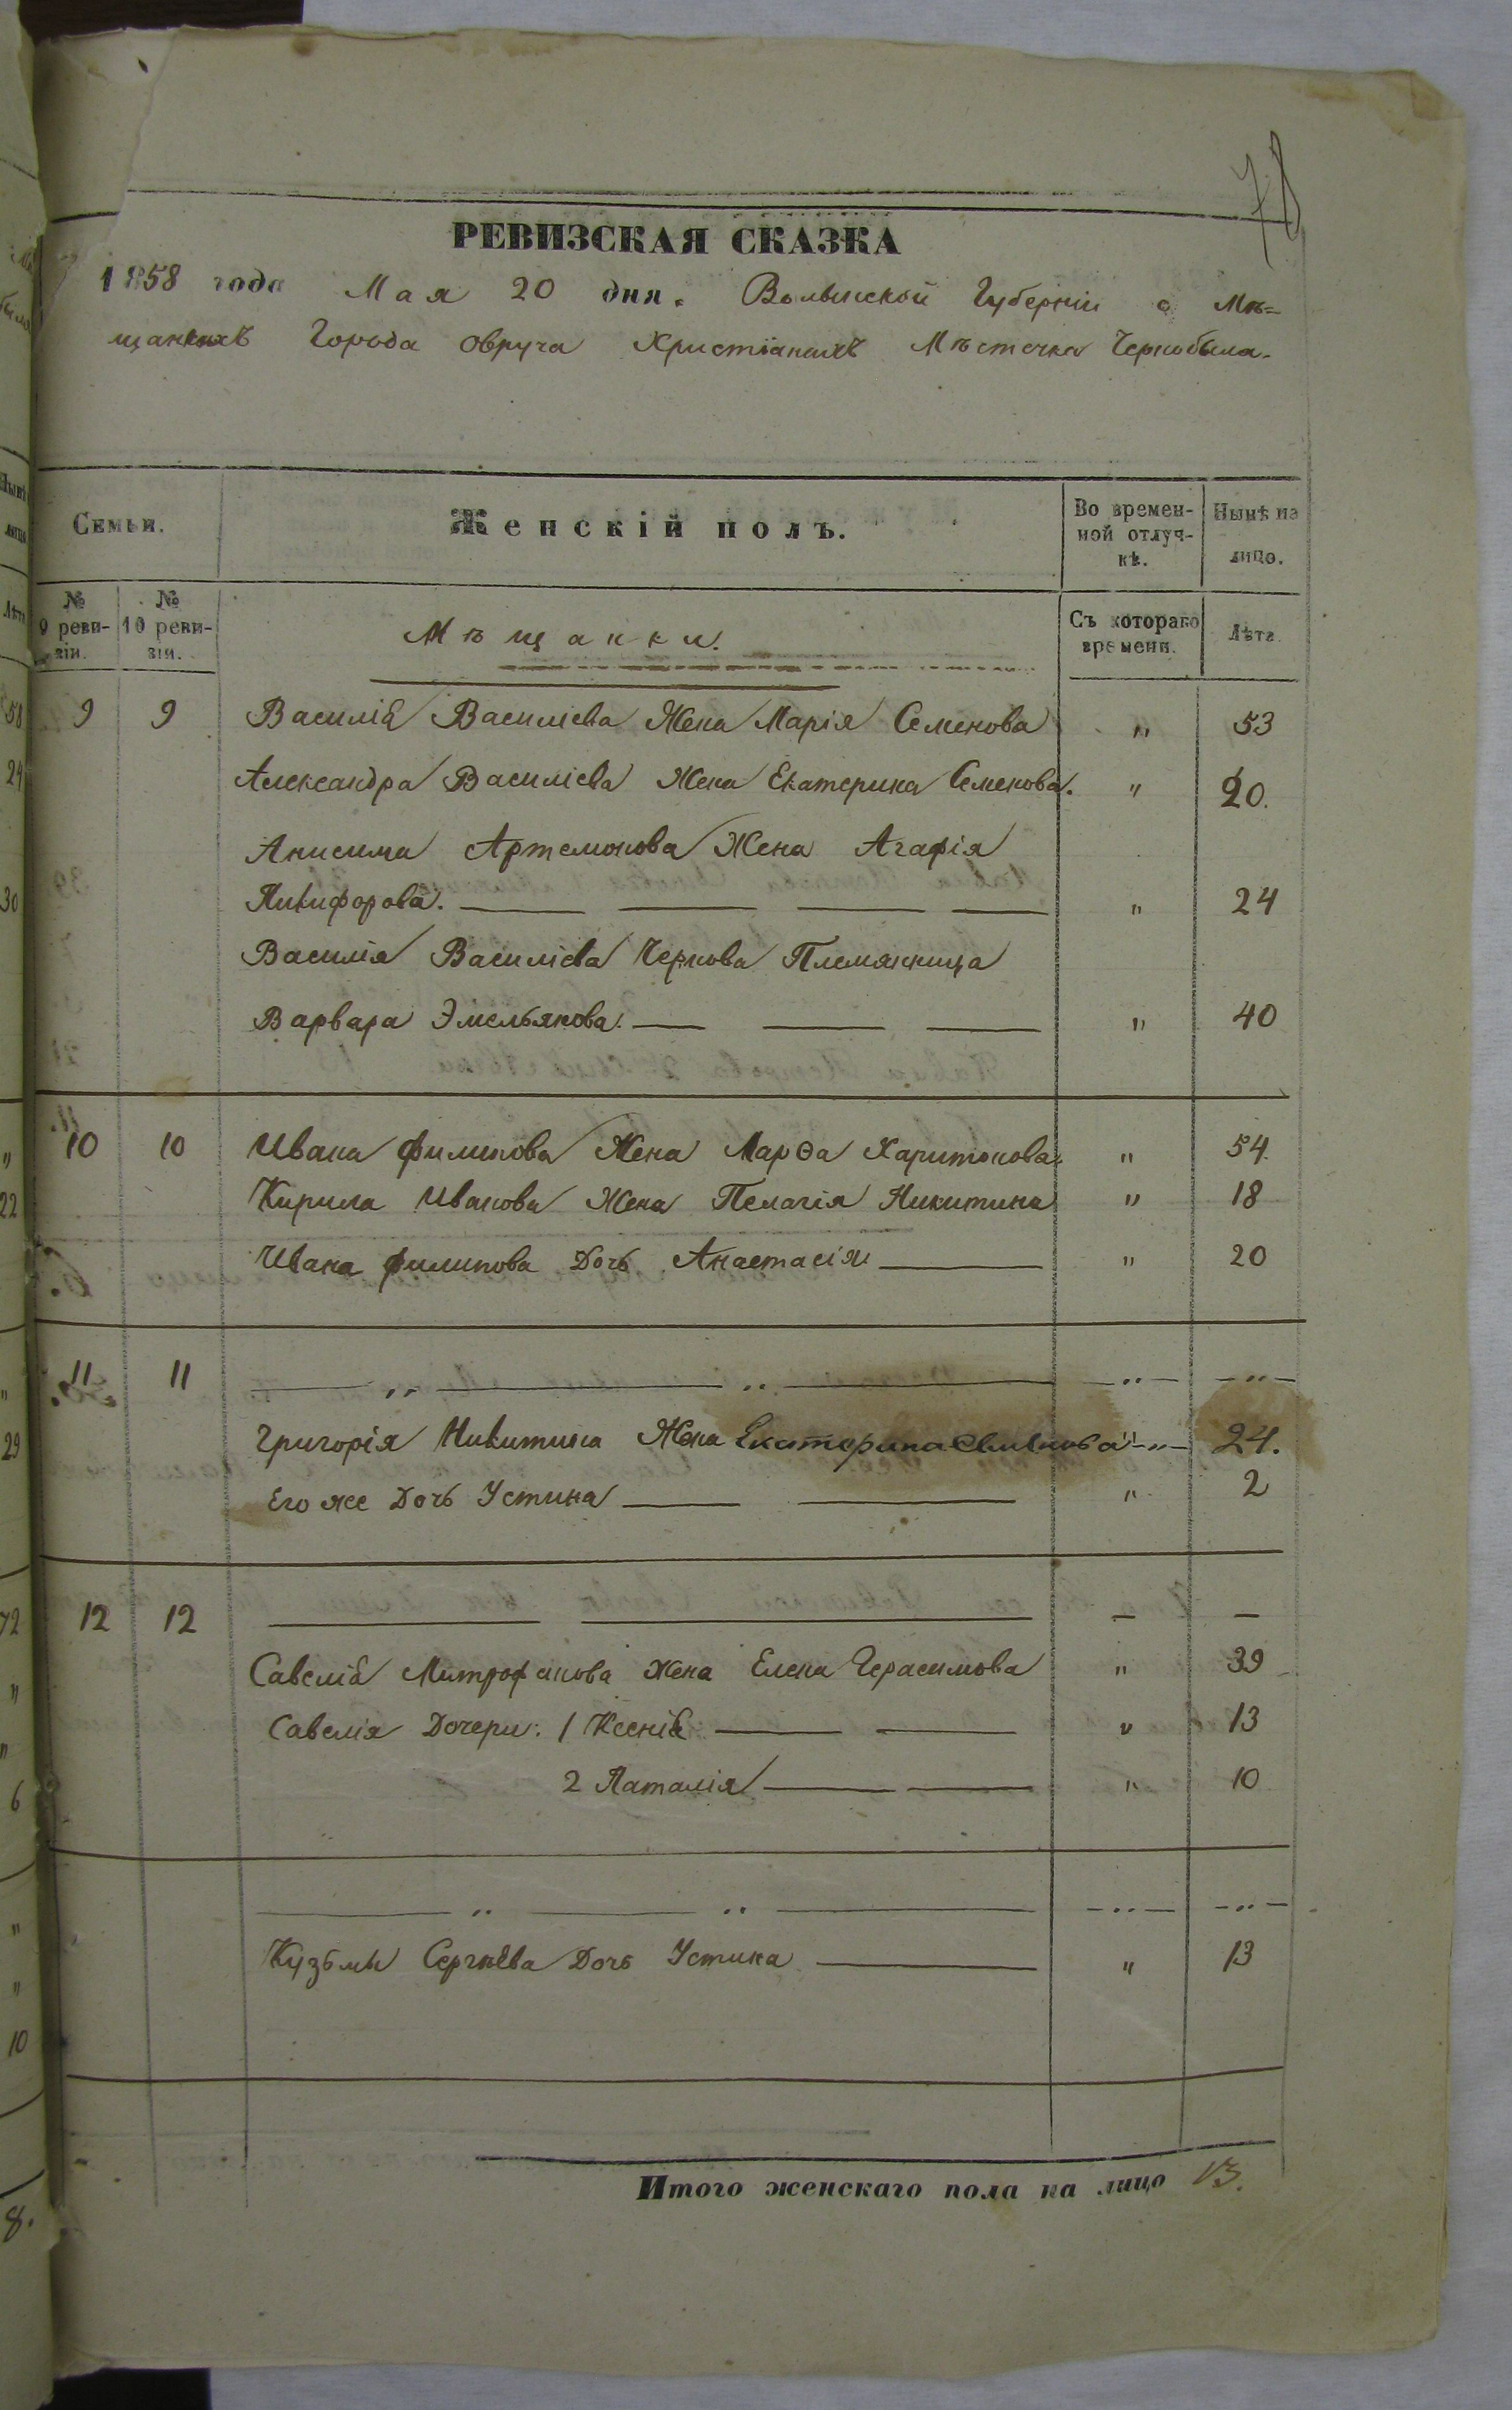 78
РЕВИЗСКАЯ СКАЗКА
1858 года Мая 20 дня. Волынской Губерніи о Мѣ=
щанкахъ Города Овруча Христіанахъ Мѣстечка Чернобыла.
Семьи.
Женскій полъ.
Во времен-
ной отлуч-
кѣ.
Нынѣ на
лицо.
№
9 реви-
зіи.
№
10 реви-
зіи.
Мѣщанки.
Съ котораго
времени.
Лѣта.
9 9 Василія Василіева Жена Марія Семенова " 53
Александра Василіева Жена Екатерина Семенова. " 20.
Анисима Артемонова Жена Агафія
Никифорова. " 24
Василія Василіева Чернова Племянница
Варвара Эмельянова. " 40
10 10 Ивана Филипова Жена Марѳа Харитонова " 54.
Кирила Иванова Жена Пелагія Никитина " 18
Ивана Филипова Дочь Анастасія " 20
11 11 — " — " — " — " —
Григорія Никитина Жена Екатерина Семенова — " — 24.
Его же Дочь Устина " 2
12 12 — — — —
Савелія Митрофанова Жена Елена Герасимова " 39
Савелія Дочери: 1 Ксенія " 13
2 Наталія " 10
— " — " — " — " —
Кузьмы Сергѣева Дочь Устина " 13
Итого женскаго пола на лицо 13.